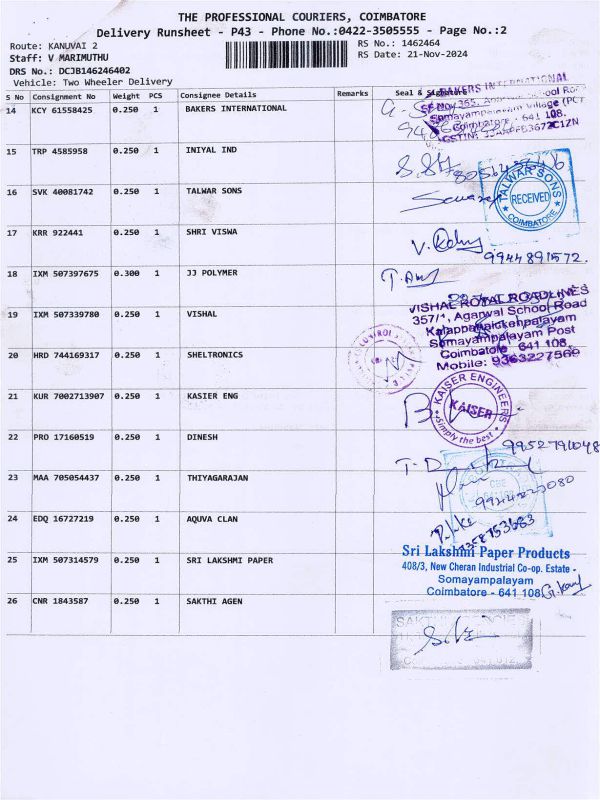 THE PROFESSIONAL COURIERS, COIMBATORE
Delivery Runsheet - P43 - Phone No.:0422-3505555 - Page No.:2
Route: KANUVAI 2
RS No.: 1462464
Staff: V MARIMUTHU
RS Date: 21-Nov-2024
DRS No.: DCJB146246402
Vehicle: Two Wheeler Delivery
S No Consignment No Weight PCS Consignee Details Remarks Seal & Signature
14 KCY 61558425 0.250 1 BAKERS INTERNATIONAL
BAKERS INTERNATIONAL
School Road
Somayampalayam Village (PO)
Coimbatore - 641 108.
15 TRP 4585958 0.250 1 INIYAL IND
16 SVK 40081742 0.250 1 TALWAR SONS
TALWAR SONS
RECEIVED
COIMBATORE
17 KRR 922441 0.250 1 SHRI VISWA
9944891572.
18 IXM 507397675 0.300 1 JJ POLYMER
19 IXM 507339780 0.250 1 VISHAL
VISHAL ROYAL ROADLINES
357/1, Agarwal School Road
Kalappanaickenpalayam
Somayampalayam Post
Coimbatore - 641 108.
Mobile: 9363227569
20 HRD 744169317 0.250 1 SHELTRONICS
21 KUR 7002713907 0.250 1 KASIER ENG
KAISER ENGINEERS
KAISER
Simply the best
22 PRO 17160519 0.250 1 DINESH
9952791048
23 MAA 705054437 0.250 1 THIYAGARAJAN
24 EDQ 16727219 0.250 1 AQUVA CLAN
25 IXM 507314579 0.250 1 SRI LAKSHMI PAPER
Sri Lakshmi Paper Products
408/3, New Cheran Industrial Co-op. Estate -
Somayampalayam
Coimbatore - 641 108
26 CNR 1843587 0.250 1 SAKTHI AGEN